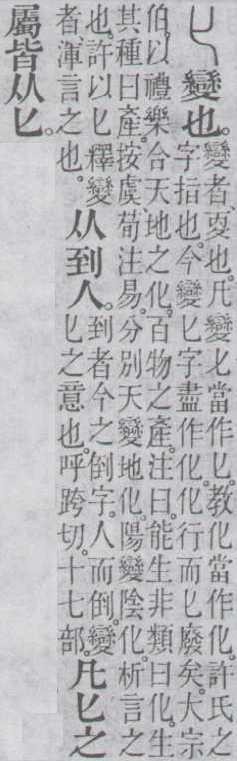 𠤎 變也。
變者、㪅也。凡變匕當作匕。教化當作化。許氏之
字指也。今變匕字盡作化。化行而匕廢矣。大宗
伯。以禮樂合天地之化。百物之產。注曰。能生非類曰化。生
其種曰產。按虞荀注易。分別天變地化。陽變陰化。析言之
也。許以匕釋變
者、渾言之也。
从到人。
到者今之倒字。人而倒。變
匕之意也。呼跨切。十七部。
凡匕之
屬皆从匕。